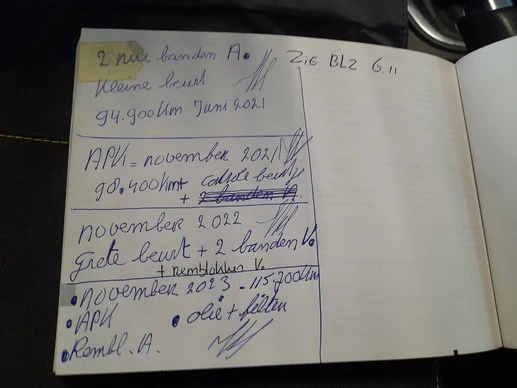 2 nwe banden A.
Kleine beurt
94.900km Juni 2021
APK = november 2021
98.400km + beurtje
+ 2 banden V.A.
november 2022
Grote beurt + 2 banden V.
+ remblokken V.
• November 2023 - 115.700km
• APK • olie + filter
• Rembl. A.
Zie BLZ 6.11